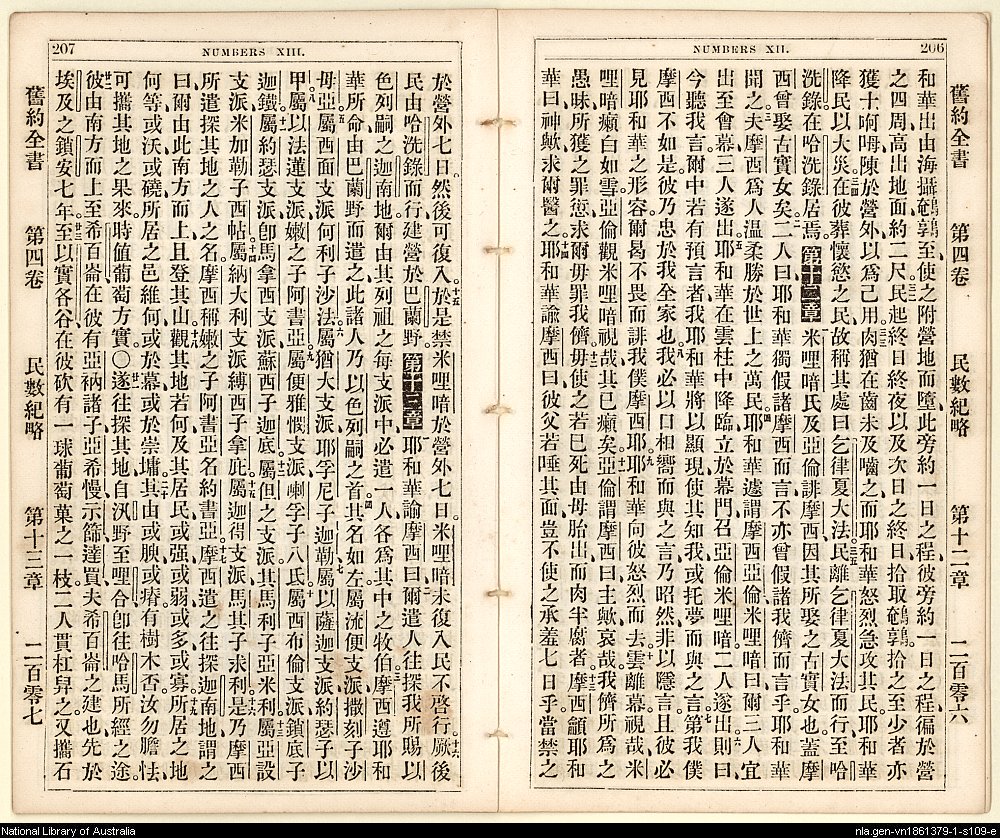 206
NUMBERS XII.
舊約全書 第四卷 民數紀略 第十二章 二百零六
和華出由海攝鵪鶉至使之附營地而墮此旁約一日之程彼旁約一日之程徧於營
之四周高出地面約二尺民起終日終夜以及次日之終日拾取鵪鶉拾之至少者亦
獲十啊㖠陳於營外以爲己用肉猶在齒未及嚙之而耶和華怒烈急攻其民耶和華
降民以大災在彼葬懷慾之民故稱其處曰乞律夏大法民離乞律夏大法而行至哈
洗錄在哈洗錄居焉 第十二章 米哩暗氏及亞倫誹摩西因其所娶之古實女也蓋摩
西曾娶古實女矣二人曰耶和華獨假諸摩西而言不亦曾假諸我儕而言乎耶和華
聞之夫摩西爲人温柔勝於世上之萬民耶和華遽謂摩西亞倫米哩暗曰爾三人宜
出至會幕三人遂出耶和華在雲柱中降臨立於幕門召亞倫米哩暗二人遂出則曰
今聽我言爾中若有預言者我耶和華將以顯現使其知我或托夢而與之言第我僕
摩西不如是彼乃忠於我全家也我必以口相嚮而與之言乃昭然非以隱言且彼必
見耶和華之形容爾曷不畏而誹我僕摩西耶耶和華向彼怒烈而去雲離幕視哉米
哩暗癩白如雪亞倫觀米哩暗視哉其已癩矣亞倫謂摩西曰主歟哀哉我儕所爲之
愚昧所獲之罪愆求爾毋罪我儕毋使之若已死由母胎出而肉半腐者摩西籲耶和
華曰神歟求爾醫之耶和華諭摩西曰彼父若唾其面豈不使之承羞七日乎當禁之
207
NUMBERS XIII.
於營外七日然後可復入於是禁米哩暗於營外七日米哩暗未復入民不啓行厥後
民由哈洗錄而行建營於巴蘭野 第十三章 耶和華諭摩西曰爾遣人往探我所賜以
色列嗣之迦南地爾由其列祖之每支派中必遣一人各爲其中之牧伯摩西遵耶和
華所命由巴蘭野而遣之此諸人乃以色列嗣之首其名如左屬流便支派撒刻子沙
母亞屬西面支派何利子沙法屬猶大支派耶孚尼子迦勒屬以薩迦支派約瑟子以
甲屬以法蓮支派嫩之子阿書亞屬便雅憫支派喇孚子八氏屬西布倫支派鎖底子
迦鐵屬約瑟支派卽馬拿西支派蘇西子迦底屬但之支派其馬利子亞米利屬亞設
支派米加勒子西帖屬納大利支派縛西子拿庇屬迦得支派馬其子汞利是乃摩西
所遣探其地之人之名摩西稱嫩之子阿書亞名約書亞摩西遣之往探迦南地謂之
曰爾由此南方而上且登其山觀其地若何及其居民或强或弱或多或寡所居之地
何等或沃或磽所居之邑維何或於幕或於崇墉其由或腴或瘠有樹木否汝勿膽怯
可攜其地之果來時値葡萄方實〇遂往探其地自汛野至哩合卽往哈馬所經之途
彼由南方而上至希百崙在彼有亞衲諸子亞希慢示篩達買夫希百崙之建也先於
埃及之鎖安七年至以實各谷在彼砍有一球葡萄菓之一枝二人貫杠舁之又攜石
舊約全書 第四卷 民數紀略 第十三章 二百零七
National Library of Australia
nla.gen-vn1861379-1-s109-e